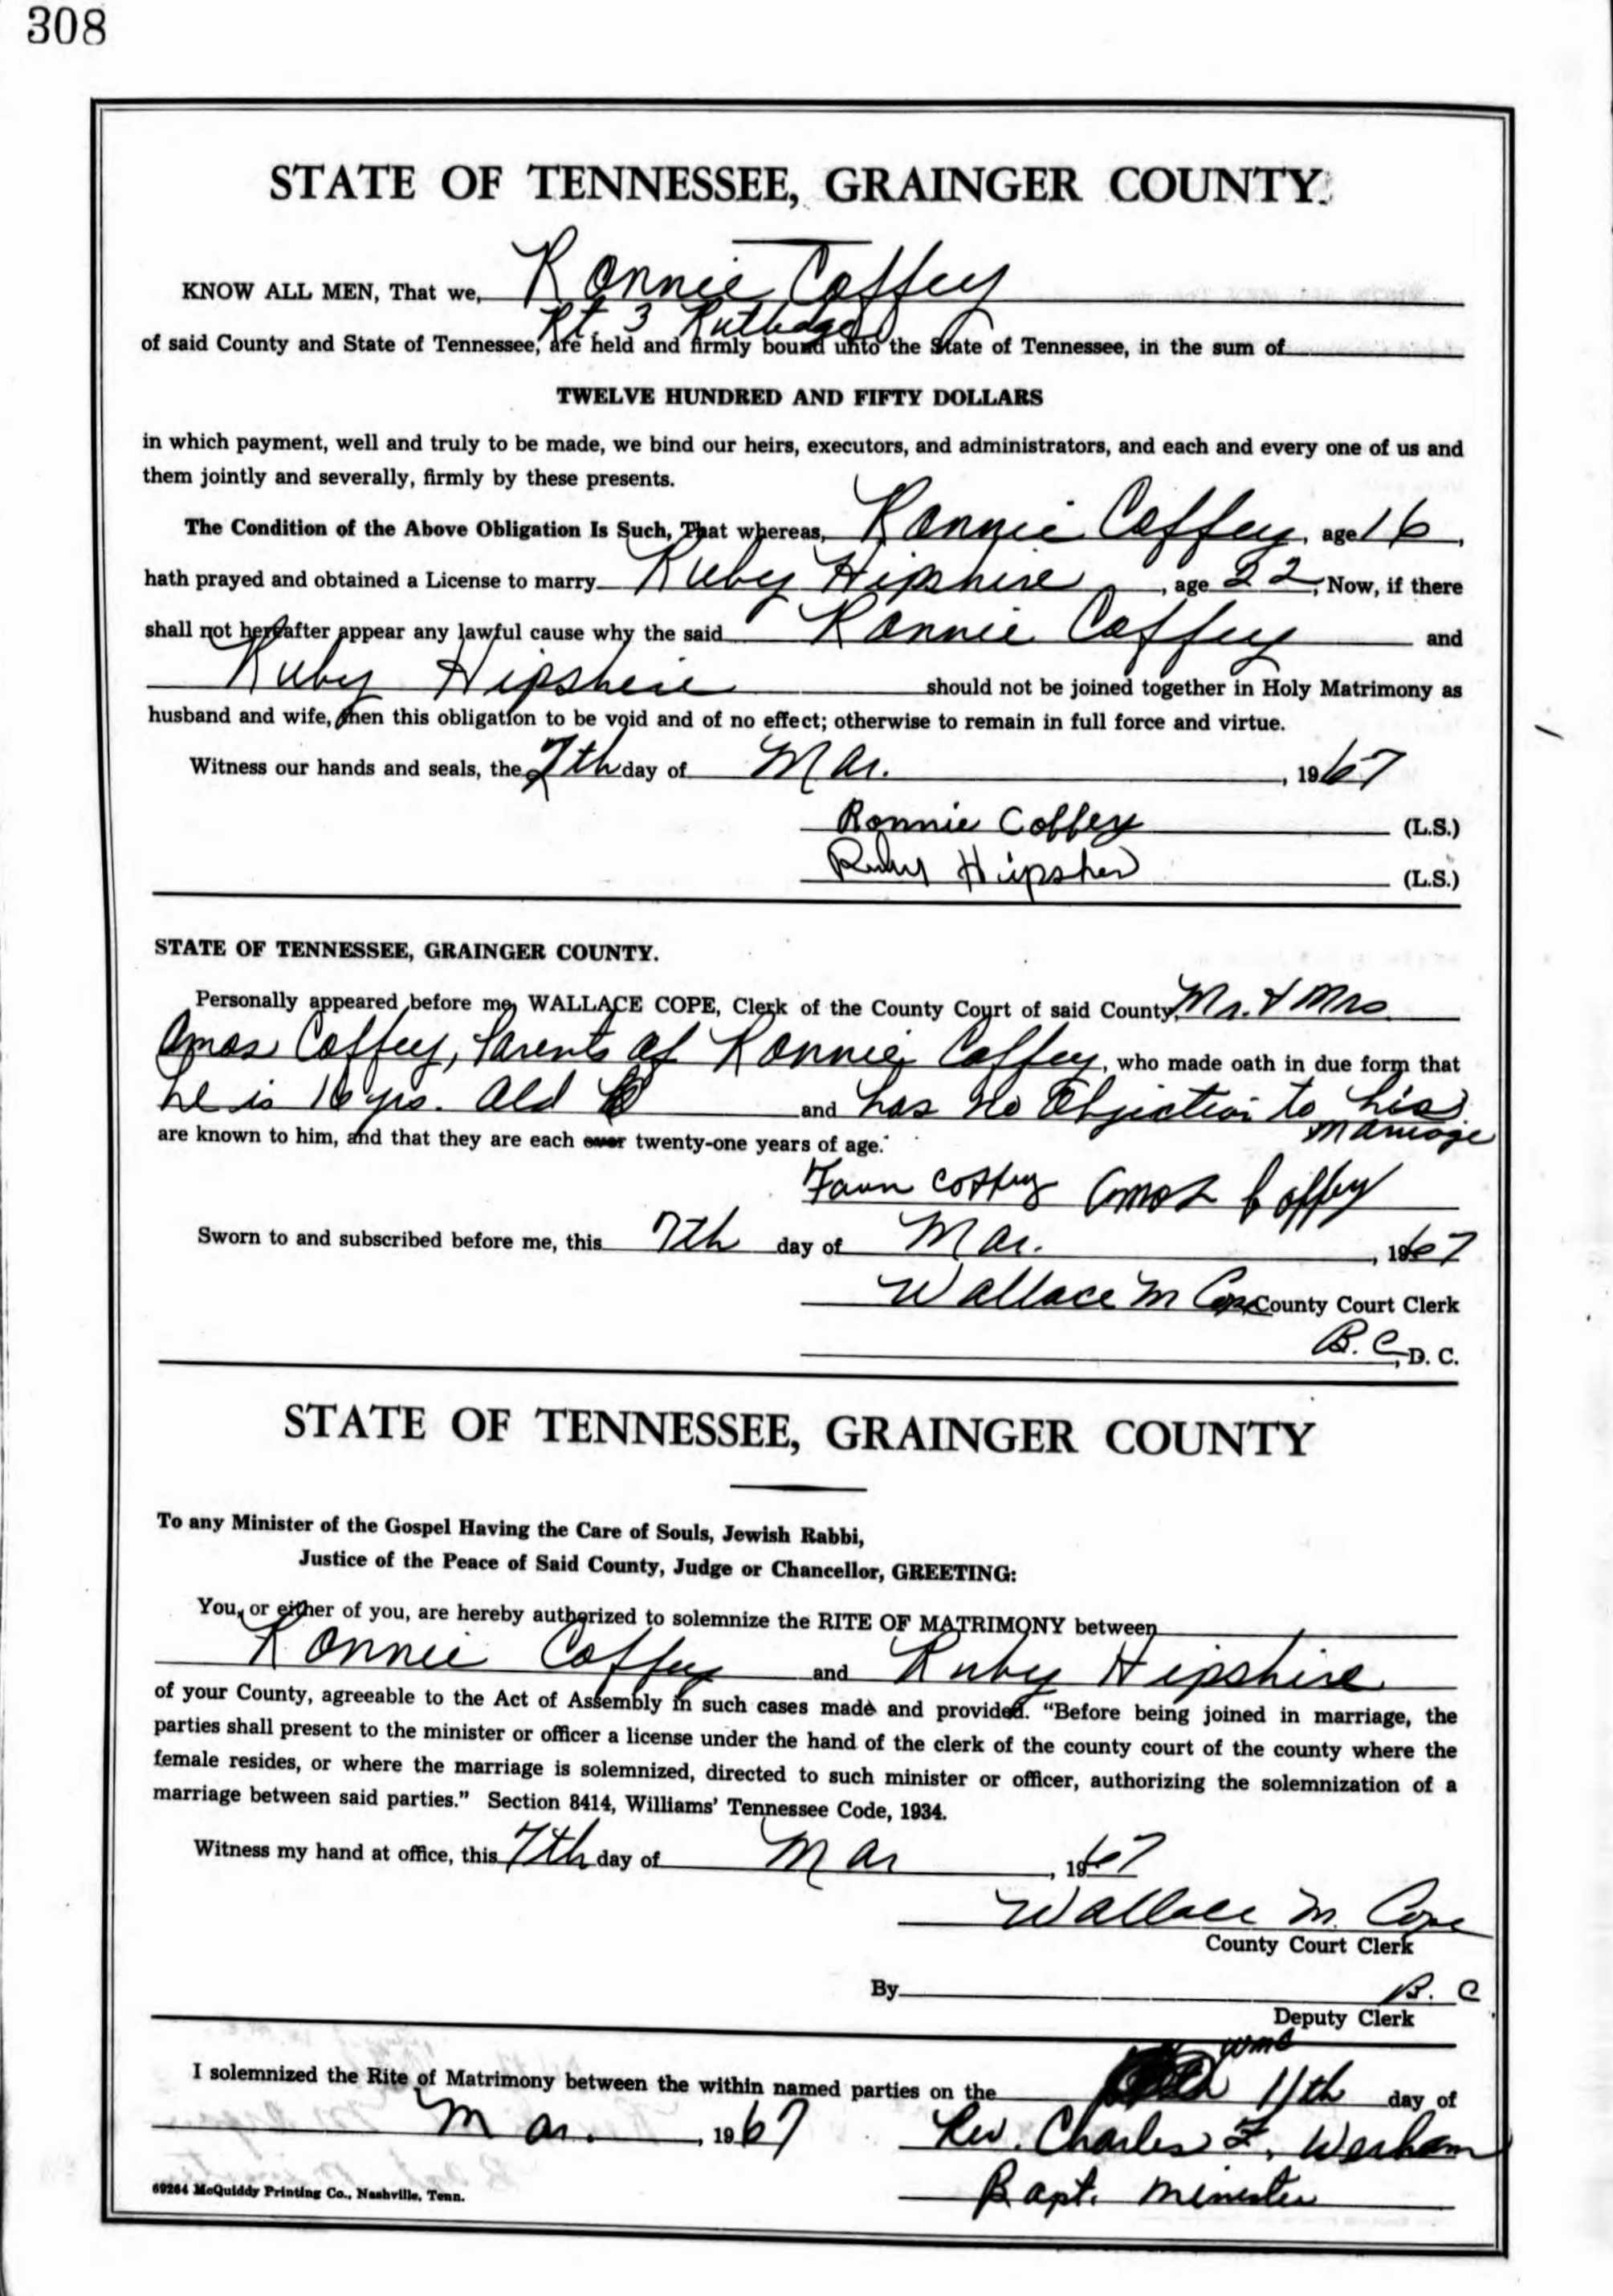 308
STATE OF TENNESSEE, GRAINGER COUNTY.
KNOW ALL MEN, That we, Ronnie Coffey
Rt. 3 Rutledge
of said County and State of Tennessee, are held and firmly bound unto the State of Tennessee, in the sum of
TWELVE HUNDRED AND FIFTY DOLLARS
in which payment, well and truly to be made, we bind our heirs, executors, and administrators, and each and every one of us and
them jointly and severally, firmly by these presents.
The Condition of the Above Obligation Is Such, That whereas, Ronnie Coffey, age 16,
hath prayed and obtained a License to marry Ruby Hipshire, age 22, Now, if there
shall not hereafter appear any lawful cause why the said Ronnie Coffey and
Ruby Hipshire should not be joined together in Holy Matrimony as
husband and wife, then this obligation to be void and of no effect; otherwise to remain in full force and virtue.
Witness our hands and seals, the 7th day of Mar., 1967
Ronnie Coffey (L.S.)
Ruby Hipsher (L.S.)
STATE OF TENNESSEE, GRAINGER COUNTY.
Personally appeared before me, WALLACE COPE, Clerk of the County Court of said County, Mr. & Mrs.
Amos Coffey, Parents of Ronnie Coffey, who made oath in due form that
he is 16 yrs. old and has no Objection to his
marriage
are known to him, and that they are each over twenty-one years of age.
Faun Coffey Amos Coffey
Sworn to and subscribed before me, this 7th day of Mar., 1967
Wallace M Cope County Court Clerk
B. C., D. C.
STATE OF TENNESSEE, GRAINGER COUNTY
To any Minister of the Gospel Having the Care of Souls, Jewish Rabbi,
Justice of the Peace of Said County, Judge or Chancellor, GREETING:
You, or either of you, are hereby authorized to solemnize the RITE OF MATRIMONY between
Ronnie Coffey and Ruby Hipshire
of your County, agreeable to the Act of Assembly in such cases made and provided. "Before being joined in marriage, the
parties shall present to the minister or officer a license under the hand of the clerk of the county court of the county where the
female resides, or where the marriage is solemnized, directed to such minister or officer, authorizing the solemnization of a
marriage between said parties." Section 8414, Williams' Tennessee Code, 1934.
Witness my hand at office, this 7th day of Mar, 1967
Wallace M. Cope
County Court Clerk
By B. C
Deputy Clerk
WMC
I solemnized the Rite of Matrimony between the within named parties on the 11th day of
Mar., 1967 Rev. Charles F. Wesham
Bapt. Minister
69264 McQuiddy Printing Co., Nashville, Tenn.